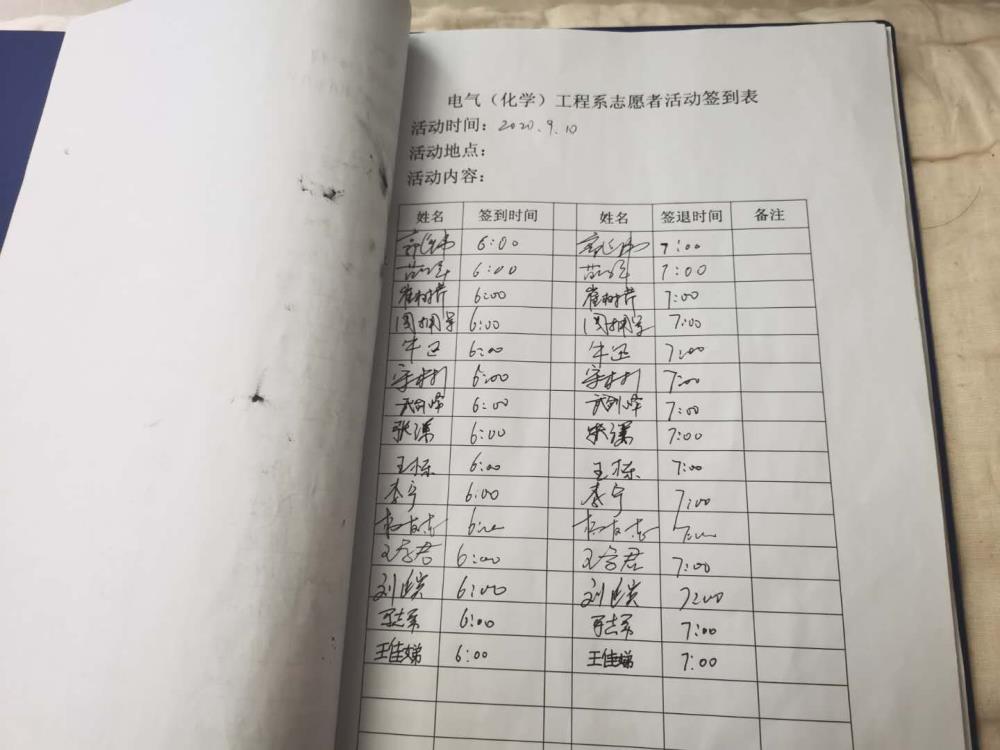 电气（化学）工程系志愿者活动签到表
活动时间：2020.9.10
活动地点：
活动内容：
姓名 签到时间 姓名 签退时间 备注
6:00 7:00
6:00 7:00
崔树芹 6:00 崔树芹 7:00
6:00 7:00
牛迅 6:00 牛迅 7:00
6:00 7:00
武剑峰 6:00 武剑峰 7:00
张潇 6:00 张潇 7:00
王栋 6:00 王栋 7:00
李宁 6:00 李宁 7:00
6:00 7:00
王学君 6:00 王学君 7:00
6:00 7:00
6:00 7:00
王佳娣 6:00 王佳娣 7:00